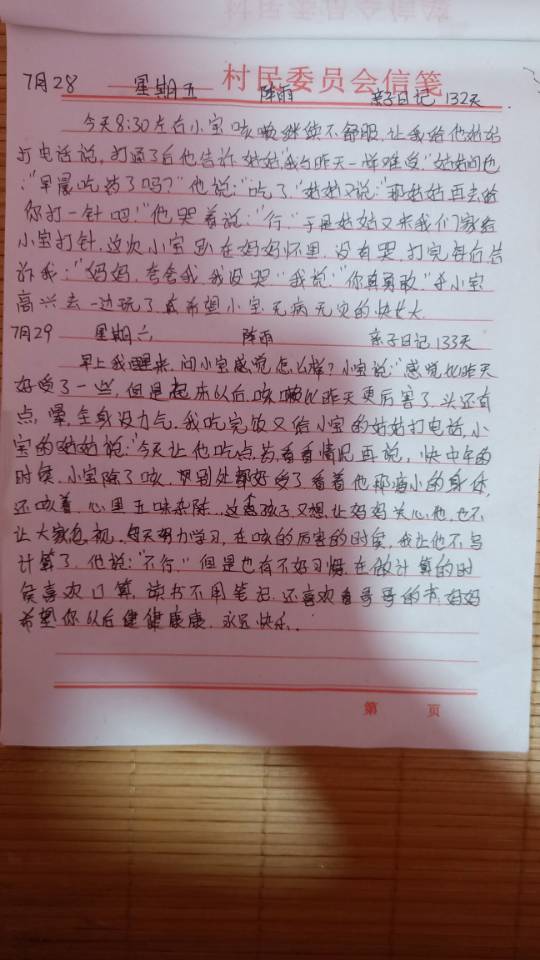 村民委员会信笺
7月28 星期五 阵雨 亲子日记 132天
今天8:30左右小宝咳嗽继续不舒服,让我给他姑姑
打电话说,打通了后他告诉姑姑"我与昨天一样难受,"姑姑问他
:"早晨吃药了吗?"他说:"吃了"姑姑又说:"那姑姑再去给
你打一针吧!"他哭着说:"行"于是姑姑又来我们家给
小宝打针,这次小宝趴在妈妈怀里,没有哭,打完针后告
诉我:"妈妈,夸夸我,我没哭"我说:"你真勇敢,"小宝
高兴去一边玩了,希望小宝无病无灾的快长大.
7月29 星期六 阵雨 亲子日记 133天
早上我醒来,问小宝感觉怎么样?小宝说:"感觉比昨天
好受了一些,但是起床以后,咳嗽比昨天更历害了,头还有
点,晕,全身没力气,我吃完饭又给小宝的姑姑打电话,小
宝的姑姑说:"今天让他吃点药,看看情况再说,快中午的
时候,小宝除了咳,别处都好受了看着他那瘦小的身体,
还咳着,心里五味杂陈,这孩子又想让妈妈关心他,也不
让大家忽视,每天努力学习,在咳的厉害的时候,我让他不写
计算了,他说:"不行,"但是也有不好习惯,在做计算的时
侯喜欢口算,读书不用笔记,还喜欢看哥哥的书,妈妈
希望你以后健健康康,永远快乐.
第 页